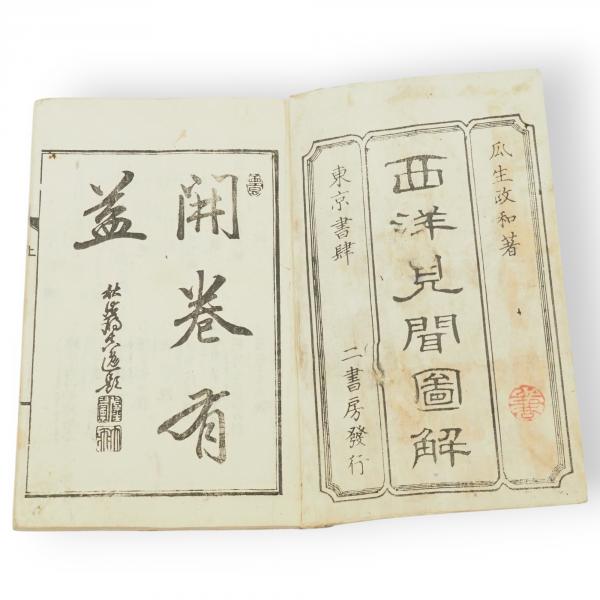 瓜生政和著
西洋見聞圖解
東京書肆 二書房發行
開卷有
益
上